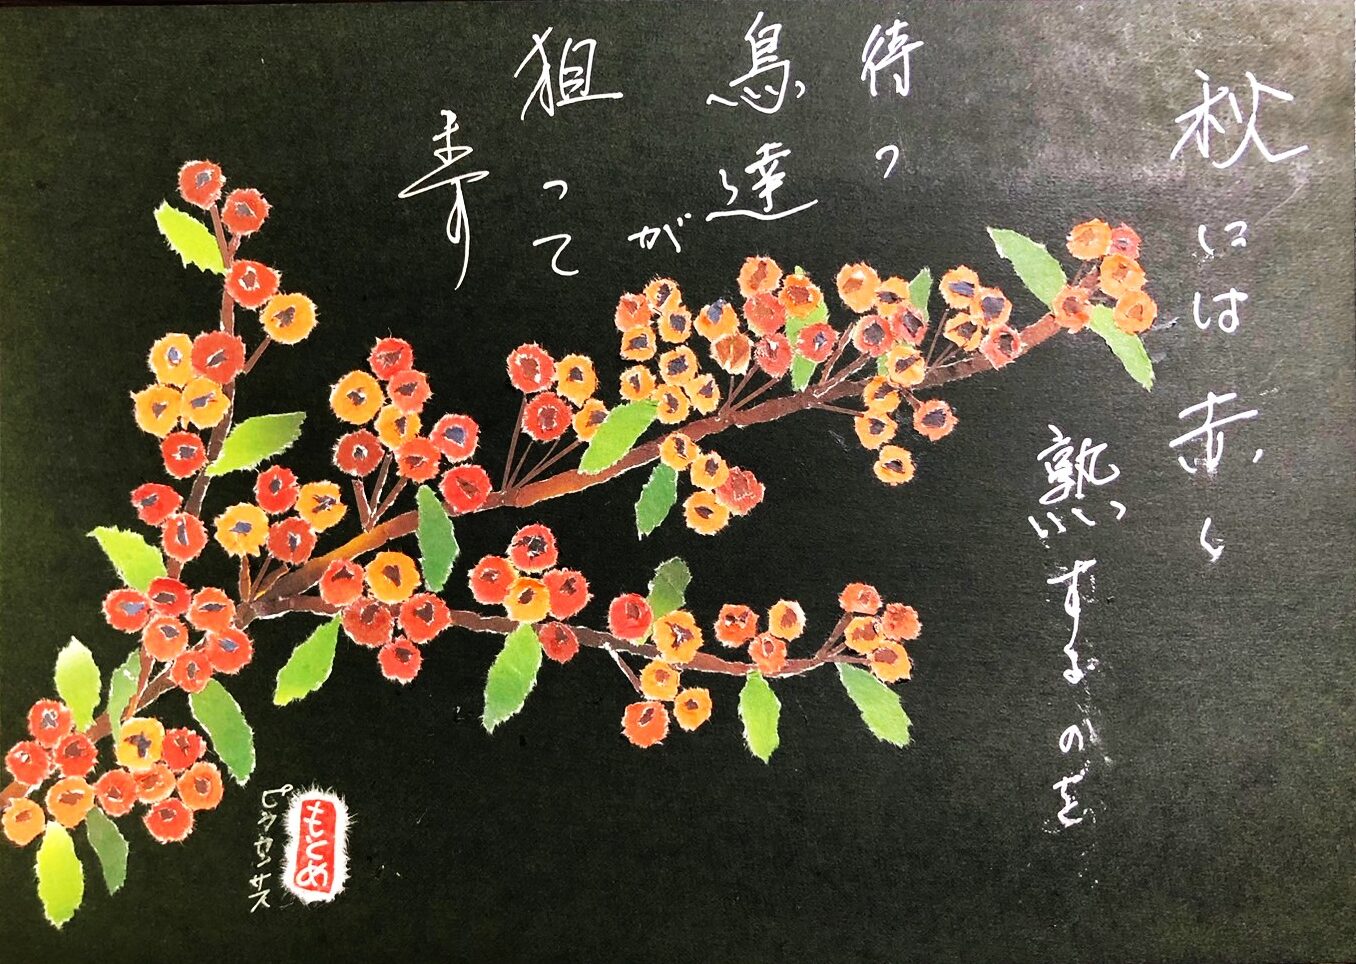 秋には赤く
熟するのを
待つ
鳥達が
狙って
ます
ピラカンサス
もとめ